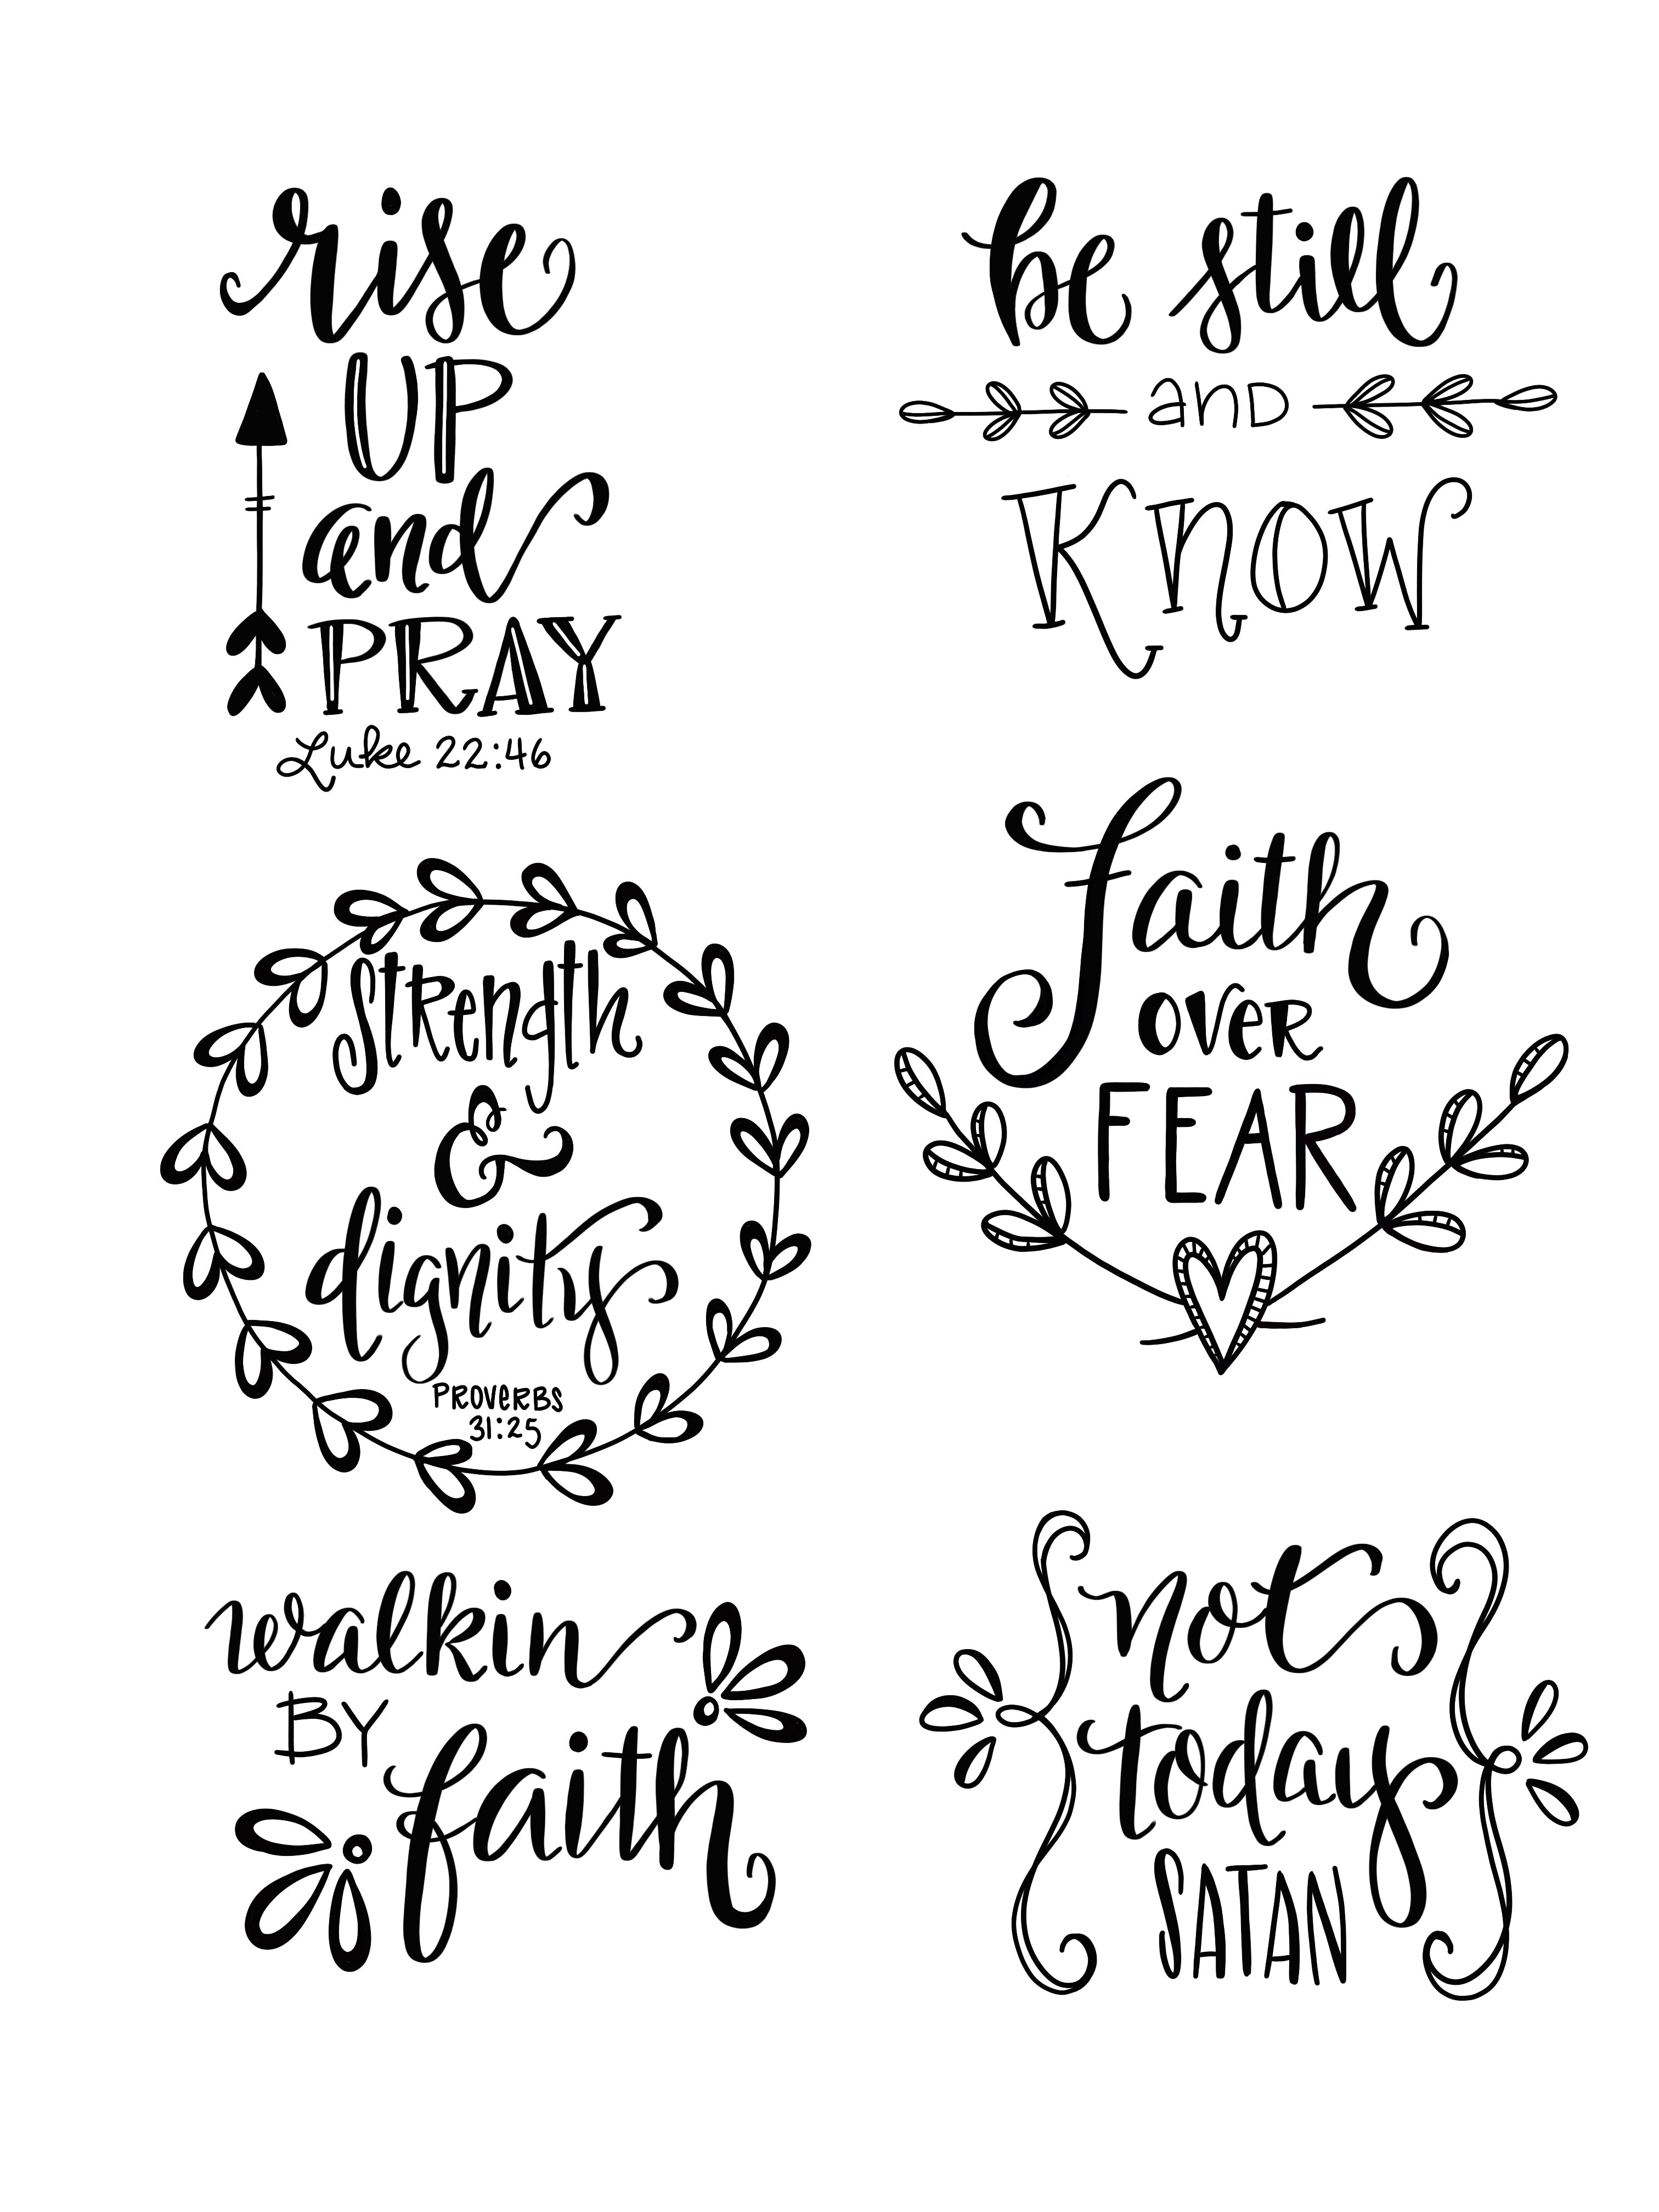 rise
UP
and
PRAY
Luke 22:46
be still
and
Know
Strength
&
dignity
PROVeRBS
31:25
faith
OVeR
FEAR
walkin
BY
faith
not
today
SATAN